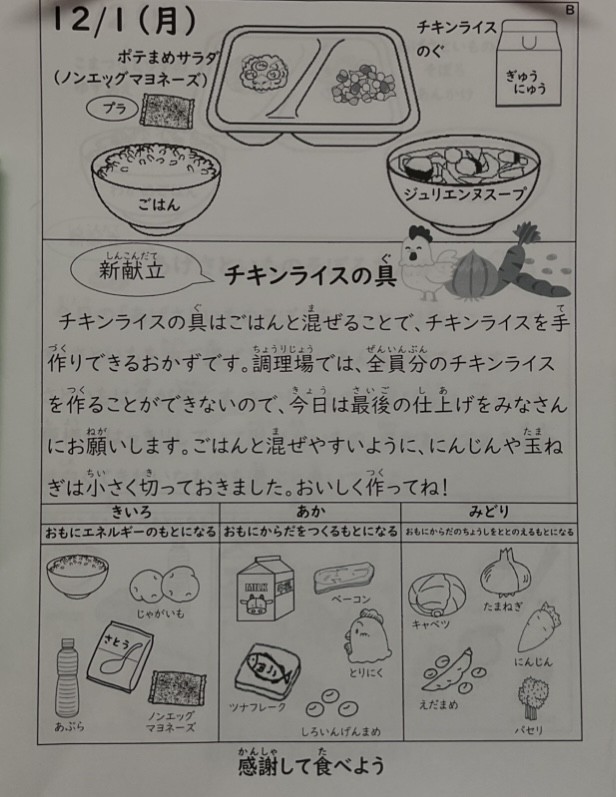 12/1(月)
B
ポテまめサラダ
(ノンエッグマヨネーズ)
プラ
チキンライス
のぐ
ぎゅう
にゅう
ごはん
ジュリエンヌスープ
新献立
しんこんだて
チキンライスの具
ぐ
チキンライスの具はごはんと混ぜることで、チキンライスを手
ぐ ま て
作りできるおかずです。調理場では、全員分のチキンライス
づく ちょうりじょう ぜんいんぶん
を作ることができないので、今日は最後の仕上げをみなさん
つく きょう さいご しあ
にお願いします。ごはんと混ぜやすいように、にんじんや玉ね
ねが ま たま
ぎは小さく切っておきました。おいしく作ってね!
ちい き つく
きいろ
あか
みどり
おもにエネルギーのもとになる
おもにからだをつくるもとになる
おもにからだのちょうしをととのえるもとになる
じゃがいも
さとう
あぶら
ノンエッグ
マヨネーズ
MILK
ベーコン
とりにく
ツナフレーク
しろいんげんまめ
キャベツ
たまねぎ
にんじん
えだまめ
パセリ
感謝して食べよう
かんしゃ た